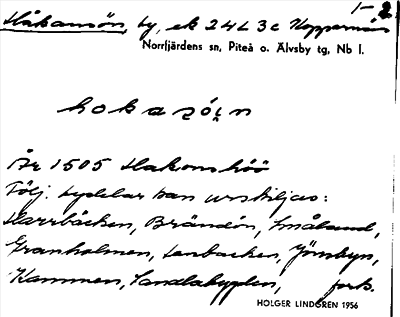 1-2
Håkansön, by, ek 24L 3c Kopparnäs
Norrfjärdens sn, Piteå o. Älvsby tg, Nb l.
hokasó̜n
År 1505 Hakonshöö
Följ. bydelar kan urskiljas:
Harrbäcken, Brändön, Småland,
Granholmen, Lenbacken, Jömbyn,
Kammen, Sandlabyplen, forts.
HOLGER LINDGREN 1956